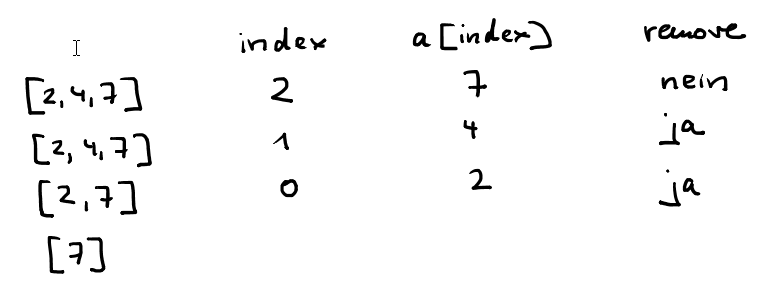 index a[index] remove
[2,4,7] 2 7 nein
[2,4,7] 1 4 ja
[2,7] 0 2 ja
[7]